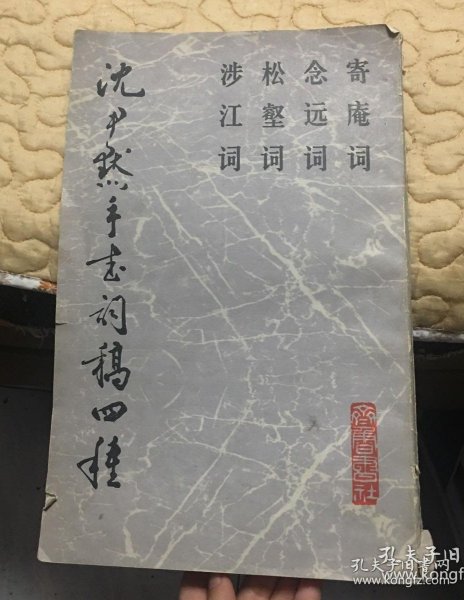 寄庵词
念远词
松壑词
涉江词
沈尹默手书词稿四种
齐鲁书社
孔夫子旧
www.kongf
孔夫子旧书网